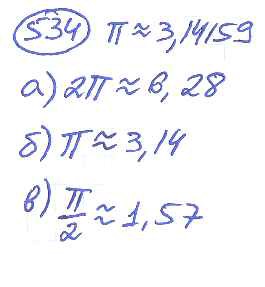 534 π ≈ 3,14159
а) 2π ≈ 6,28
б) π ≈ 3,14
в) π/2 ≈ 1,57